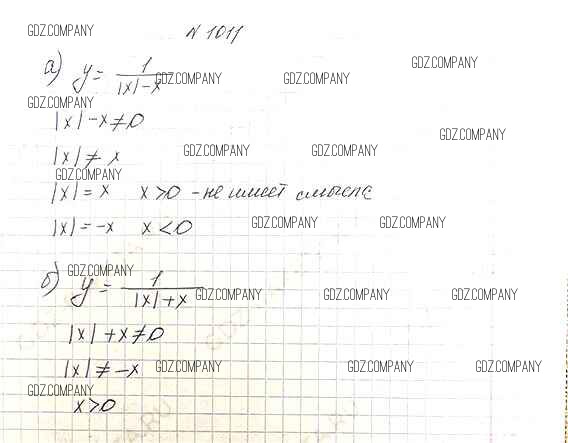 GDZ.COMPANY
N 1011
а) y = 1/(|x|-x)
GDZ.COMPANY GDZ.COMPANY GDZ.COMPANY
GDZ.COMPANY
|x| - x ≠ 0
GDZ.COMPANY
|x| ≠ x
GDZ.COMPANY GDZ.COMPANY
GDZ.COMPANY
|x| = x x > 0 - не имеет смысла
|x| = -x x < 0
GDZ.COMPANY GDZ.COMPANY
GDZ.COMPANY
б) y = 1/(|x|+x)
GDZ.COMPANY GDZ.COMPANY GDZ.COMPANY
|x| + x ≠ 0
|x| ≠ -x
GDZ.COMPANY GDZ.COMPANY GDZ.COMPANY
GDZ.COMPANY
x > 0